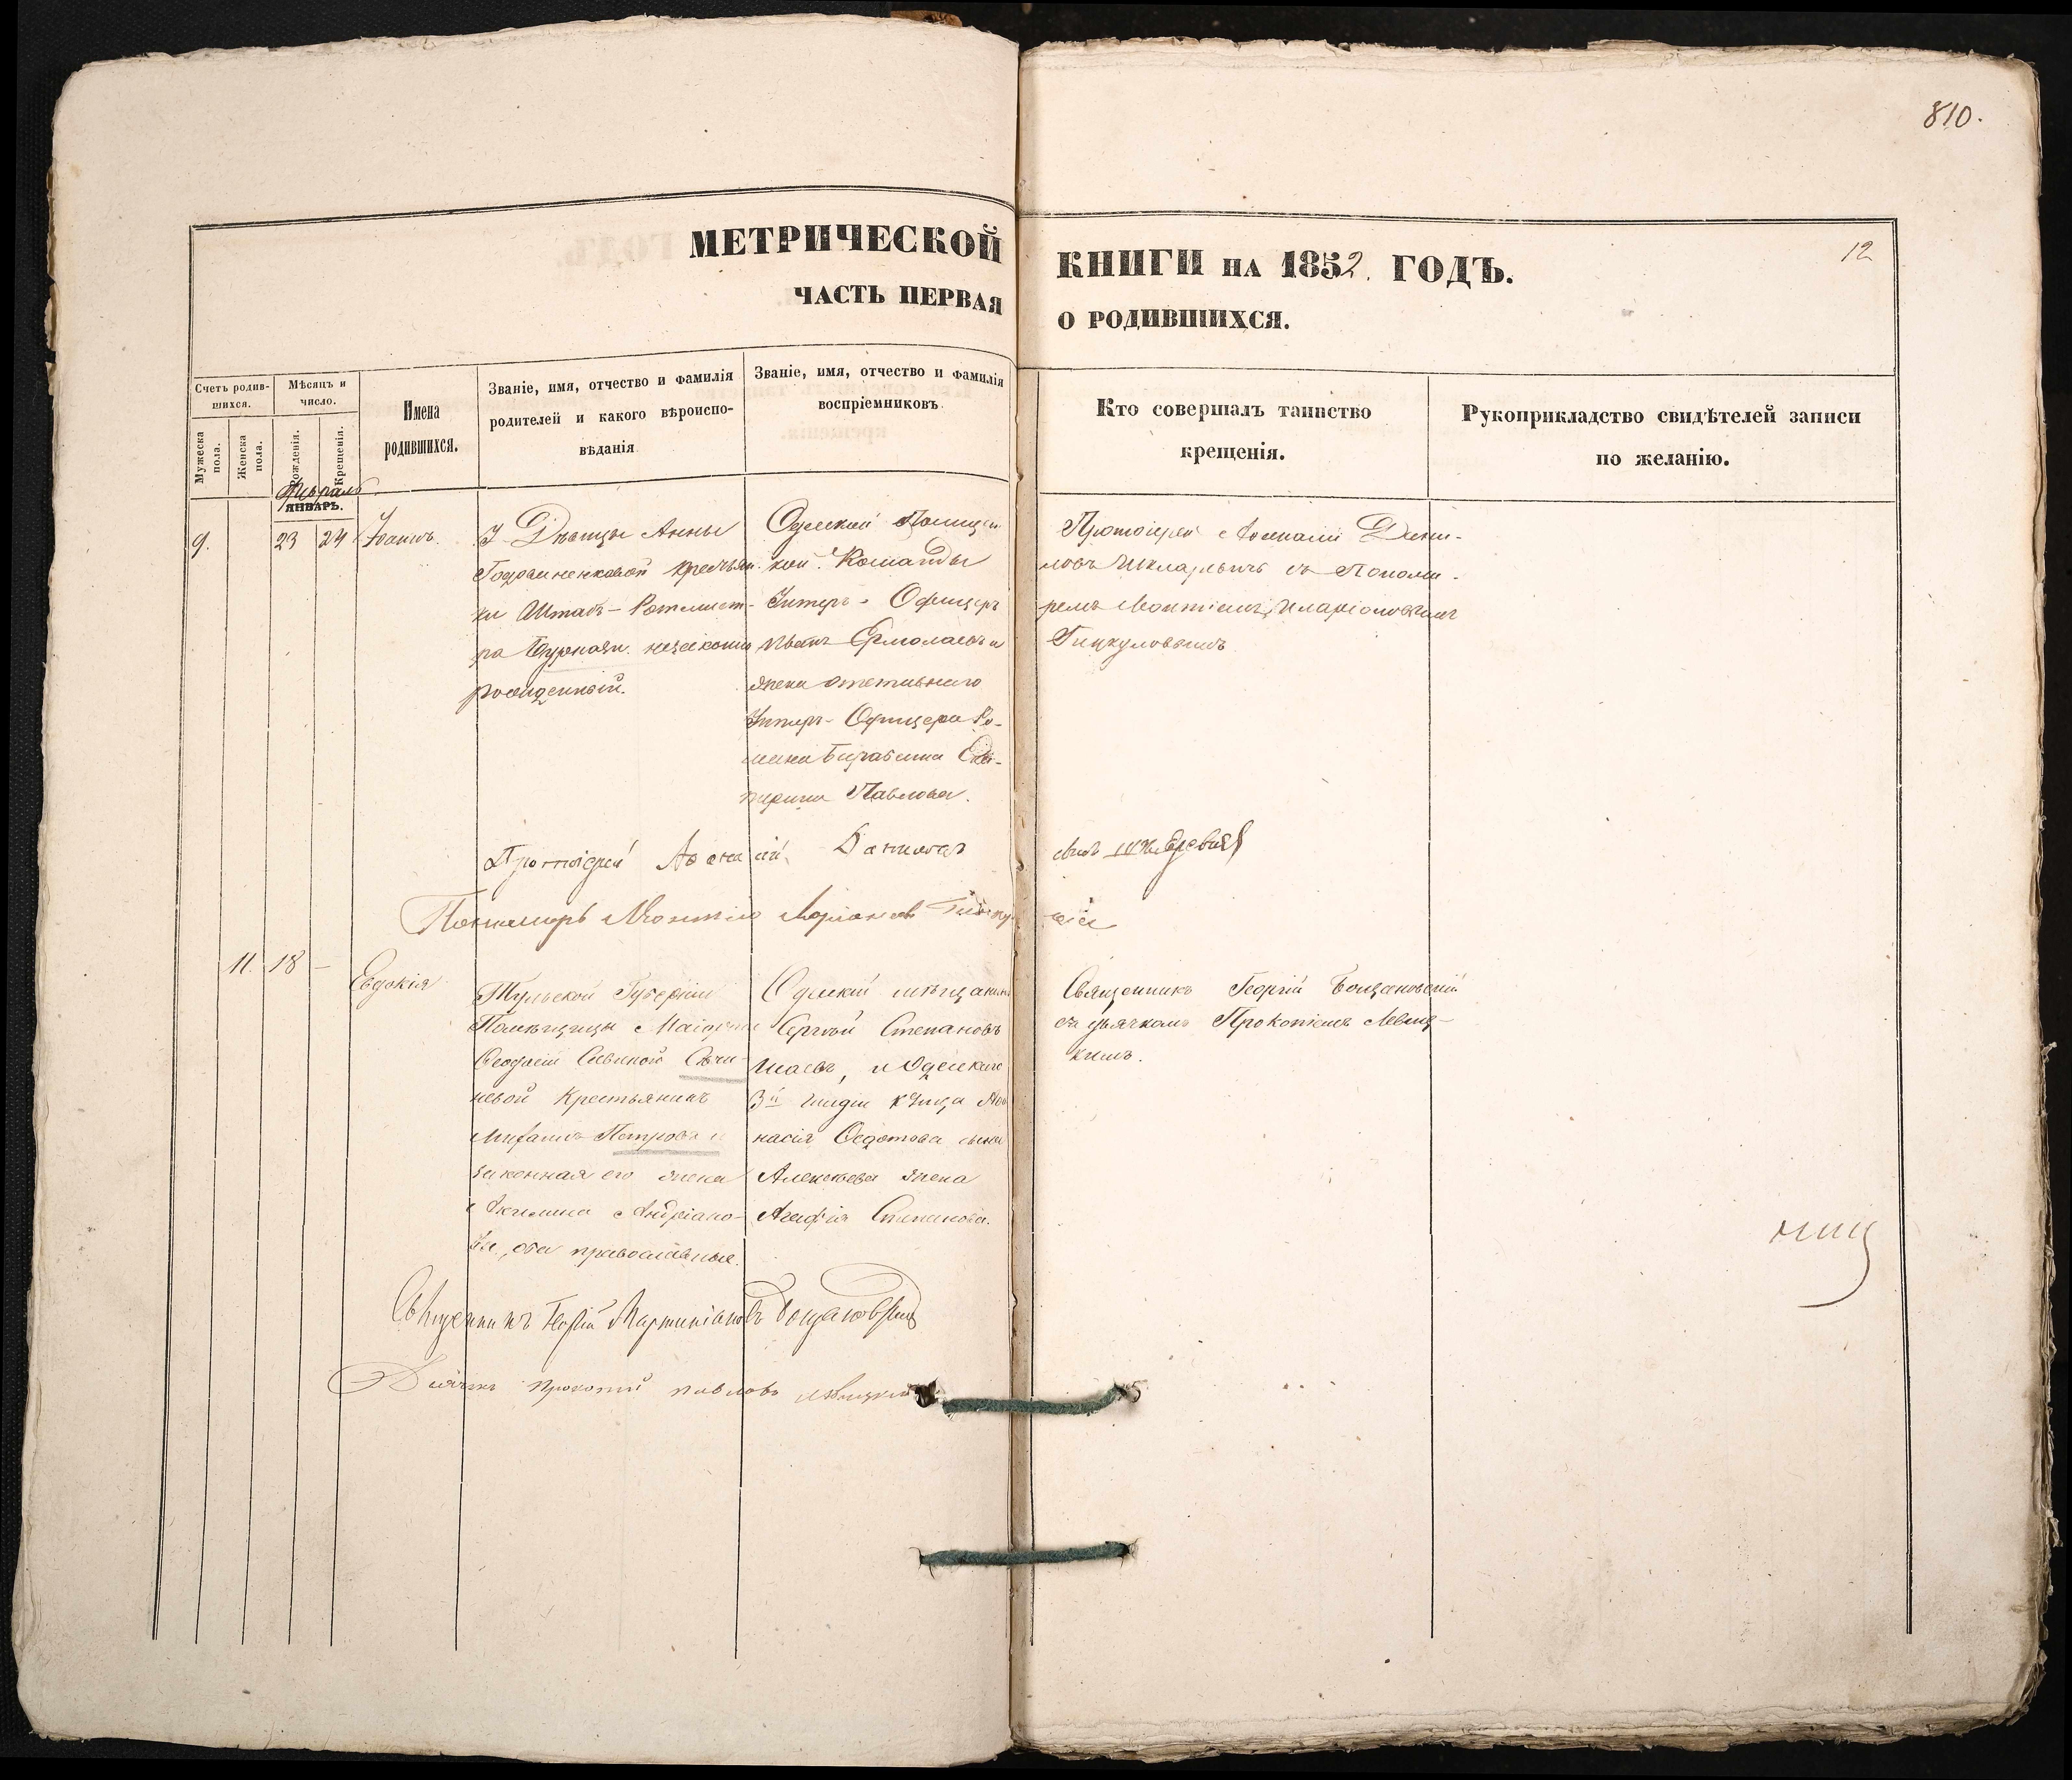 810.
МЕТРИЧЕСКОЙ КНИГИ НА 1852. ГОДЪ.
12
ЧАСТЬ ПЕРВАЯ О РОДИВШИХСЯ.
Счетъ родив-
шихся.
Мужеска пола.
Женска пола.
Мѣсяцъ и
число.
Рожденія.
Крещенія.
Имена
родившихся.
Званіе, имя, отчество и фамилія
родителей и какого вѣроиспо-
вѣданія
Званіе, имя, отчество и фамилія
воспріемниковъ.
Кто совершалъ таинство
крещенія.
Рукоприкладство свидѣтелей записи
по желанію.
Февраль
ЯНВАРЬ.
9.
23
24
Іоаннъ.
У Дѣвицы Анны
крестьян-
ки Штабъ-Ротмист-
ра незаконно
рожденный.
Одесской Полицей-
кой Команды
Унтеръ-Офицеръ
Иванъ Ермолаевъ и
жена отставнаго
Унтеръ-Офицера Ро-
мана Ека-
терина Павлова.
Протоіерей Аѳанасій Дани-
ловъ съ Понома-
ремъ
Протоіерей Аѳанасій Даниловъ
Пономарь
11.
18
–
Евдокія
Тульской Губерніи
Помѣщицы
Ѳеодосіи Савиной
Крестьянинъ
Петровъ и
законная его жена
Акилина Андріано-
ва, оба православные.
Одескій мѣщанинъ
Сергѣй Степановъ
и Одескаго
3й гильдіи купца Аѳа
насія Ѳедотова сына
Алексѣева жена
Агафія Степанова.
Священникъ Георгій Бощановскій
съ дьячкомъ Прокопіемъ Левиц-
кимъ.
Священникъ Георгій Мартиніановъ Бощановскій
Дьячекъ Прокопій Павловъ Левицкій